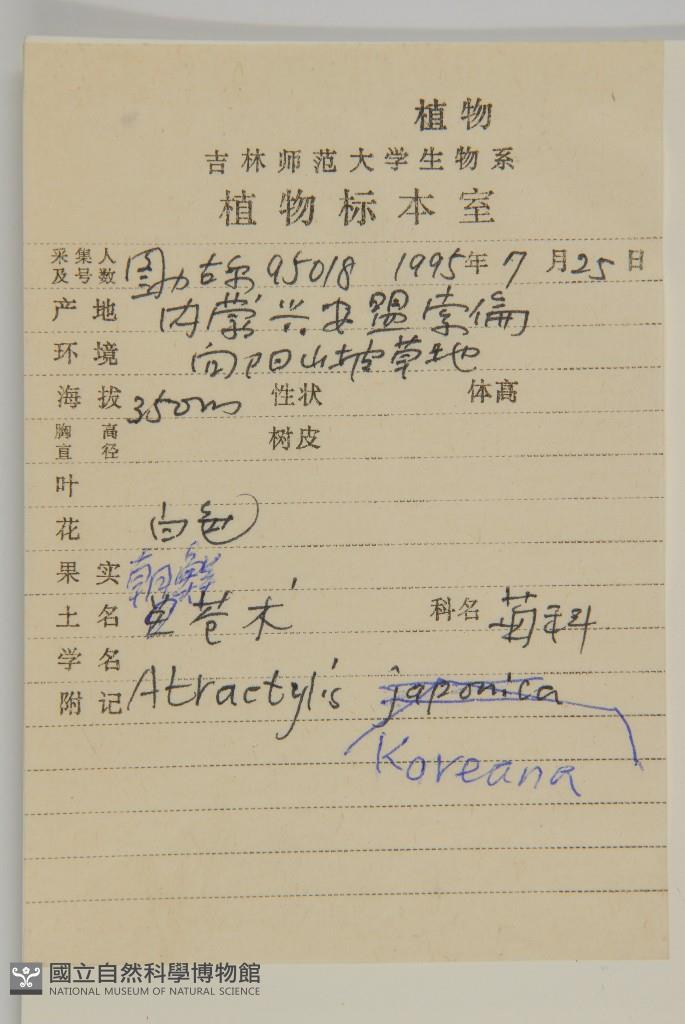 植物
吉林师范大学生物系
植物标本室
采集人及号数 95018 1995年7月25日
产地 内蒙兴安盟索倫
环境 向阳山坡草地
海拔 350m 性状 体高
胸高直径 树皮
叶
花 白色
果实
朝鲜
土名 苍术 科名 菊科
学名
附记 Atractylis japonica
Koreana
國立自然科學博物館
NATIONAL MUSEUM OF NATURAL SCIENCE